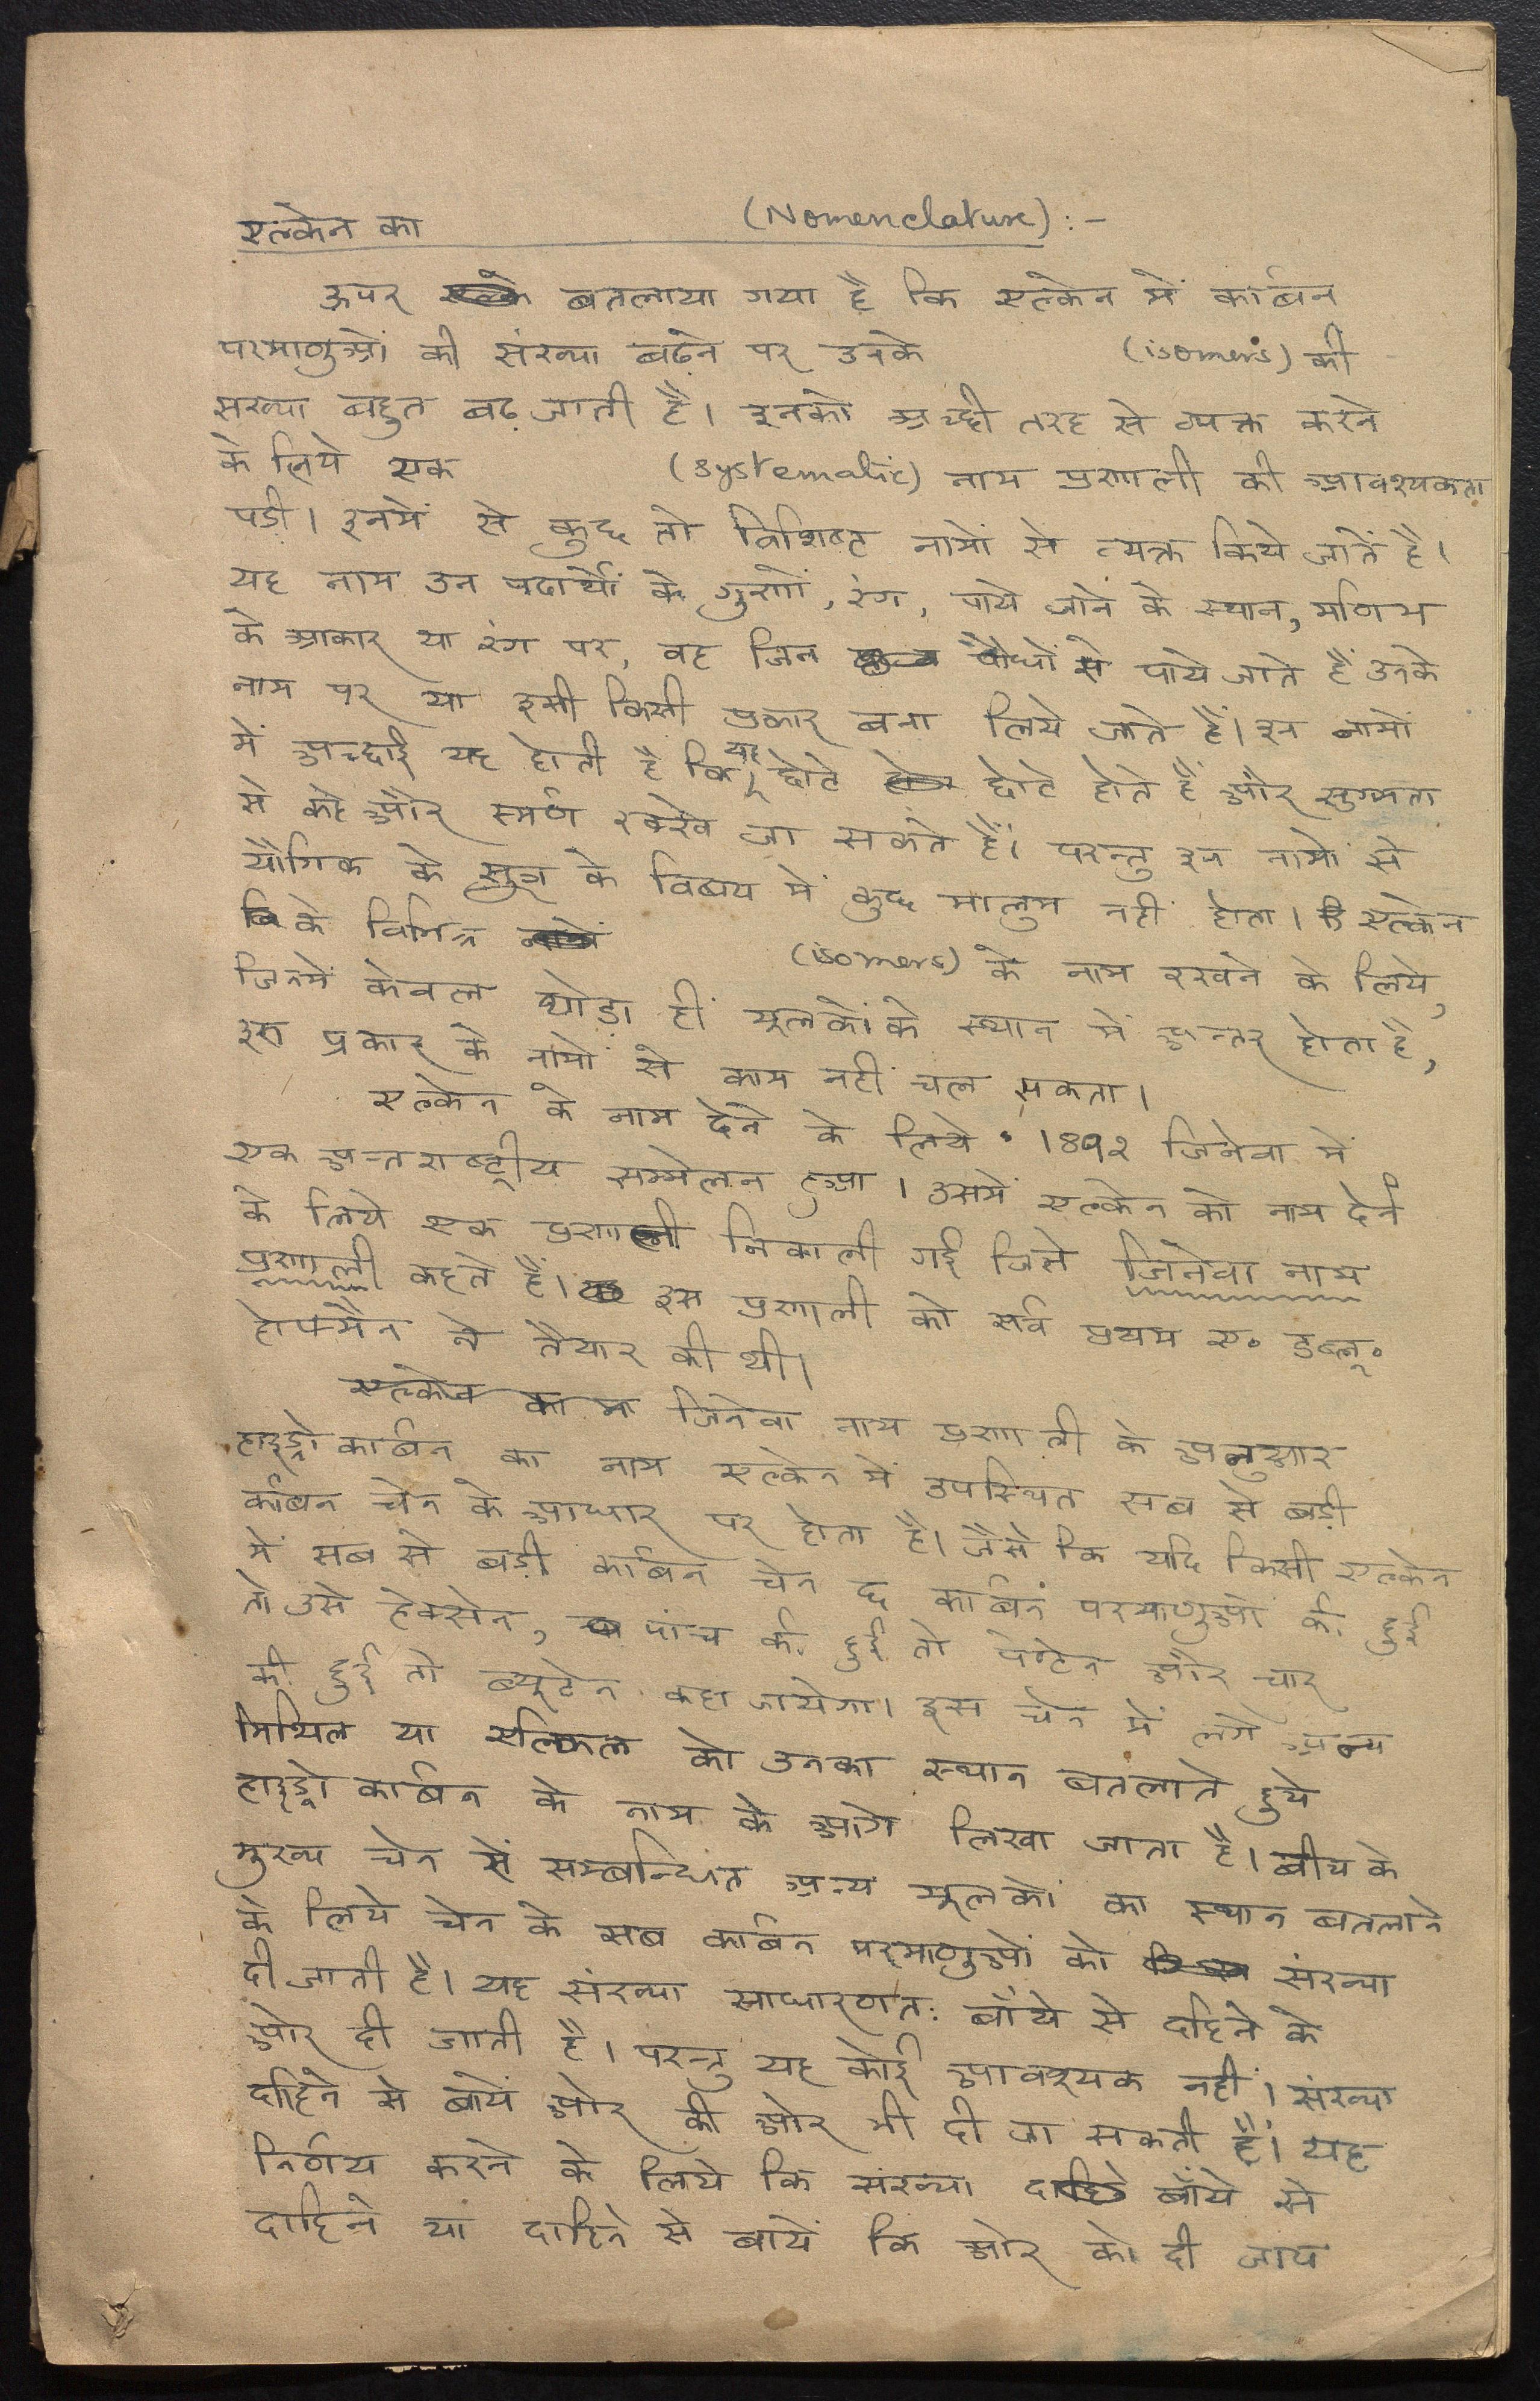 एल्केन का (Nomenclature) :-
ऊपर बतलाया गया है कि एल्केन में कार्बन
परमाणुओं की संख्या बढ़ने पर उनके (isomers) की
सख्या बहुत बढ़ जाती है। इनको अच्छी तरह से व्यक्त करने
के लिये एक (systematic) नाम प्रणाली की आवश्यकता
पडी। इनमें से कुछ तो विशिष्ट नामों से व्यक्त किये जातें है।
यह नाम उन पदार्थों के गुणों, रंग, पाये जाने के स्थान, मणिभ
के आकार या रंग पर, वह जिन पौधों से पाये जाते हैं उनके
नाम पर या इसी किसी प्रकार बना लिये जाते हैं। इन नामों
में अच्छाई यह होती है कि यह छोटे छोटे होते हैं और सुगमता
से कहे और स्मर्ण रक्खे जा सकते हैं। परन्तु इन नामों से
यौगिक के सुत्र के विषय में कुछ मालुम नहीं होता। एल्केन
के विभिन्न (isomers) के नाम रखने के लिये,
जिनमें केवल थोड़ा हीं मूलकों के स्थान में अन्तर होता है,
इस प्रकार के नामों से काम नहीं चल सकता।
एल्केन के नाम देने के लिये 1892 जिनेवा में
एक अन्तराष्ट्रीय सम्मेलन हुआ। उसमें एल्केन को नाम देने
के लिये एक प्रणाली निकाली गई जिसे जिनेवा नाम
प्रणाली कहते हैं। इस प्रणाली को सर्व प्रथम ए॰ डब्लू॰
होफमैन ने तैयार की थी।
एल्केन का जिनेवा नाम प्रणाली के अनुसार
हाइड्रो कार्बन का नाम एल्केन में उपस्थित सब से बड़ी
कार्बन चेन के आधार पर होता है। जैसे कि यदि किसी एल्केन
में सब से बड़ी कार्बन चेन छ कार्बन परमाणुओं की हुई
तो उसे हेक्सेन, पांच की हुई तो पेण्टेन और चार
की हुई तो ब्यूटेन कहा जायेगा। इस चेन में लगे अन्य
मिथिल या एल्किल को उनका स्थान बतलाते हुये
हाइड्रो कार्बन के नाम के आगे लिखा जाता है। बीच के
मुख्य चेन से सम्बन्धित अन्य मूलकों का स्थान बतलाने
के लिये चेन के सब कार्बन परमाणुओं को संख्या
दी जाती है। यह संख्या साधारणत: बाँये से दाहिने के
ओर दी जाती है। परन्तु यह कोई आवश्यक नहीं। संख्या
दाहिने से बायें ओर की ओर भी दी जा सकती है। यह
निर्णय करने के लिये कि संख्या बाँये से
दाहिने या दाहिने से बायें कि ओर को दी जाय